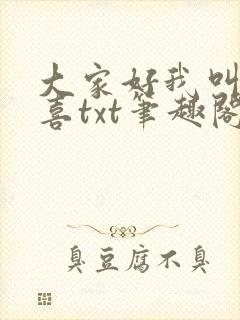 大家好我叫
喜txt笔趣阁
臭豆腐不臭